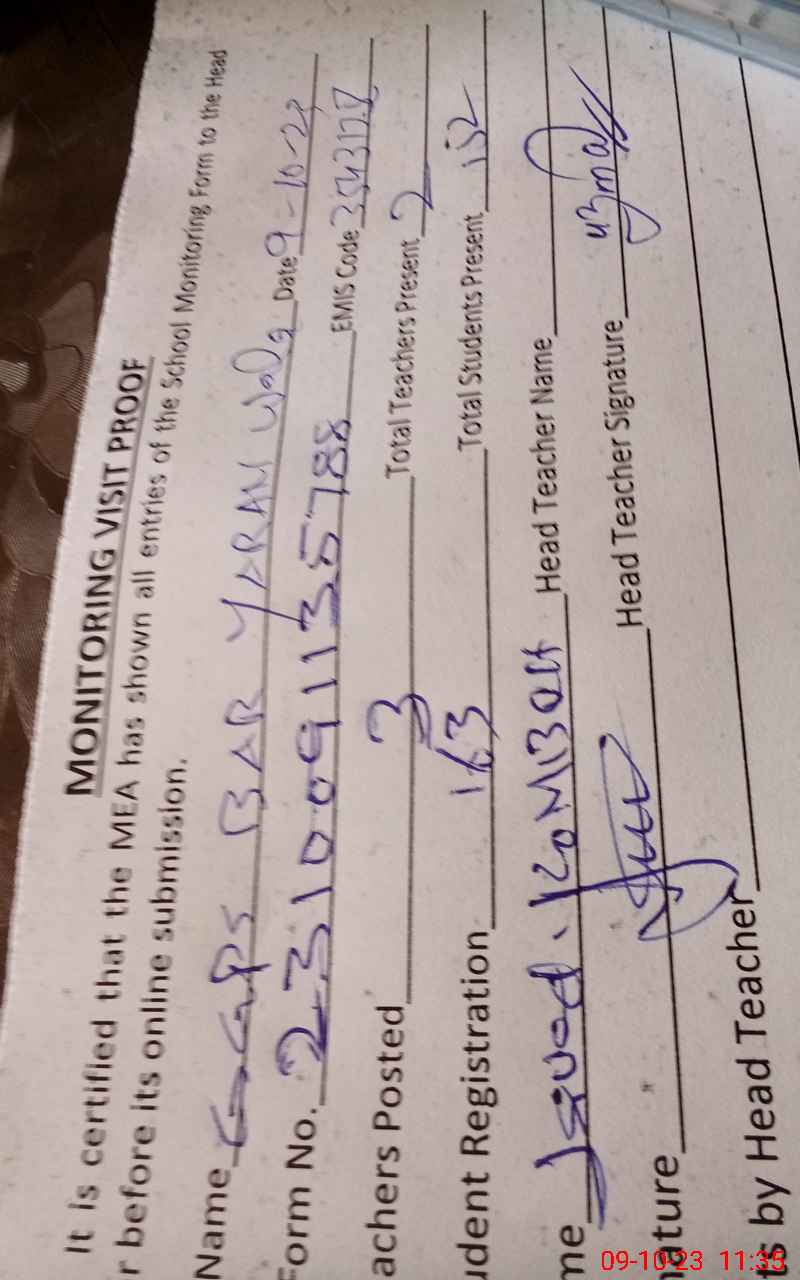 MONITORING VISIT PROOF
It is certified that the MEA has shown all entries of the School Monitoring Form to the Head
r before its online submission.
Name GGPS BAR YARAN Date 9-10-23
Form No. 231009113 5788 EMIS Code
achers Posted 3 Total Teachers Present 2
udent Registration 163 Total Students Present 152
me Javed Head Teacher Name
ature Head Teacher Signature uzma
ts by Head Teacher
09-10-23 11:35